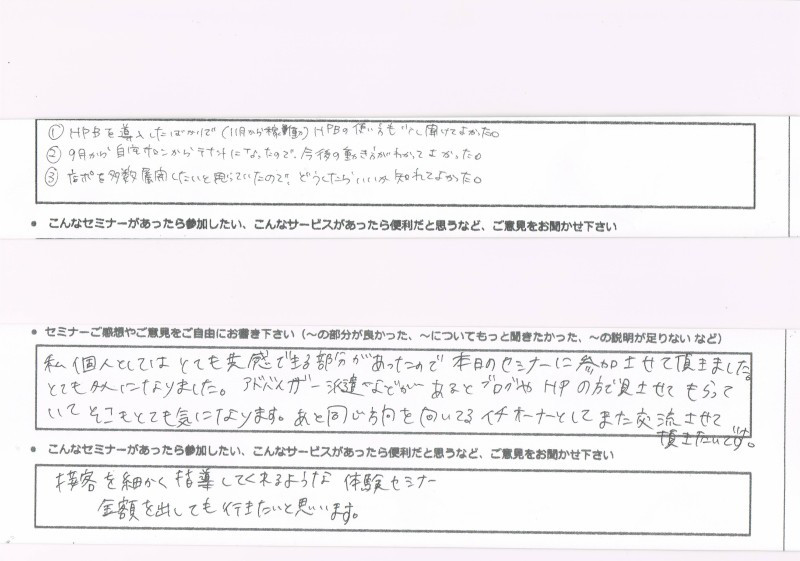 ① HPBを導入したばかりで(11月から稼動)HPBの使い方も少し聞けてよかった。
② 9月から自宅サロンからテナントになったので、今後の動き方がわかってよかった。
③ 店ポを多数展開したいと思っていたので、どうしたらいいか知れてよかった。
• こんなセミナーがあったら参加したい、こんなサービスがあったら便利だと思うなど、ご意見をお聞かせ下さい
• セミナーご感想やご意見をご自由にお書き下さい(~の部分が良かった、~についてもっと聞きたかった、~の説明が足りない など)
私個人としてはとても共感できる部分があったので本日のセミナーに参加させて頂きました。
とても為になりました。アドバイザー派遣などがあるとブログやHPの方で見させてもらって
いてそこもとても気になります。あと同じ方向を向いてるイチオーナーとしてまた交流させて
頂きたいです。
• こんなセミナーがあったら参加したい、こんなサービスがあったら便利だと思うなど、ご意見をお聞かせ下さい
接客を細かく指導してくれるような体験セミナー
金額を出しても行きたいと思います。